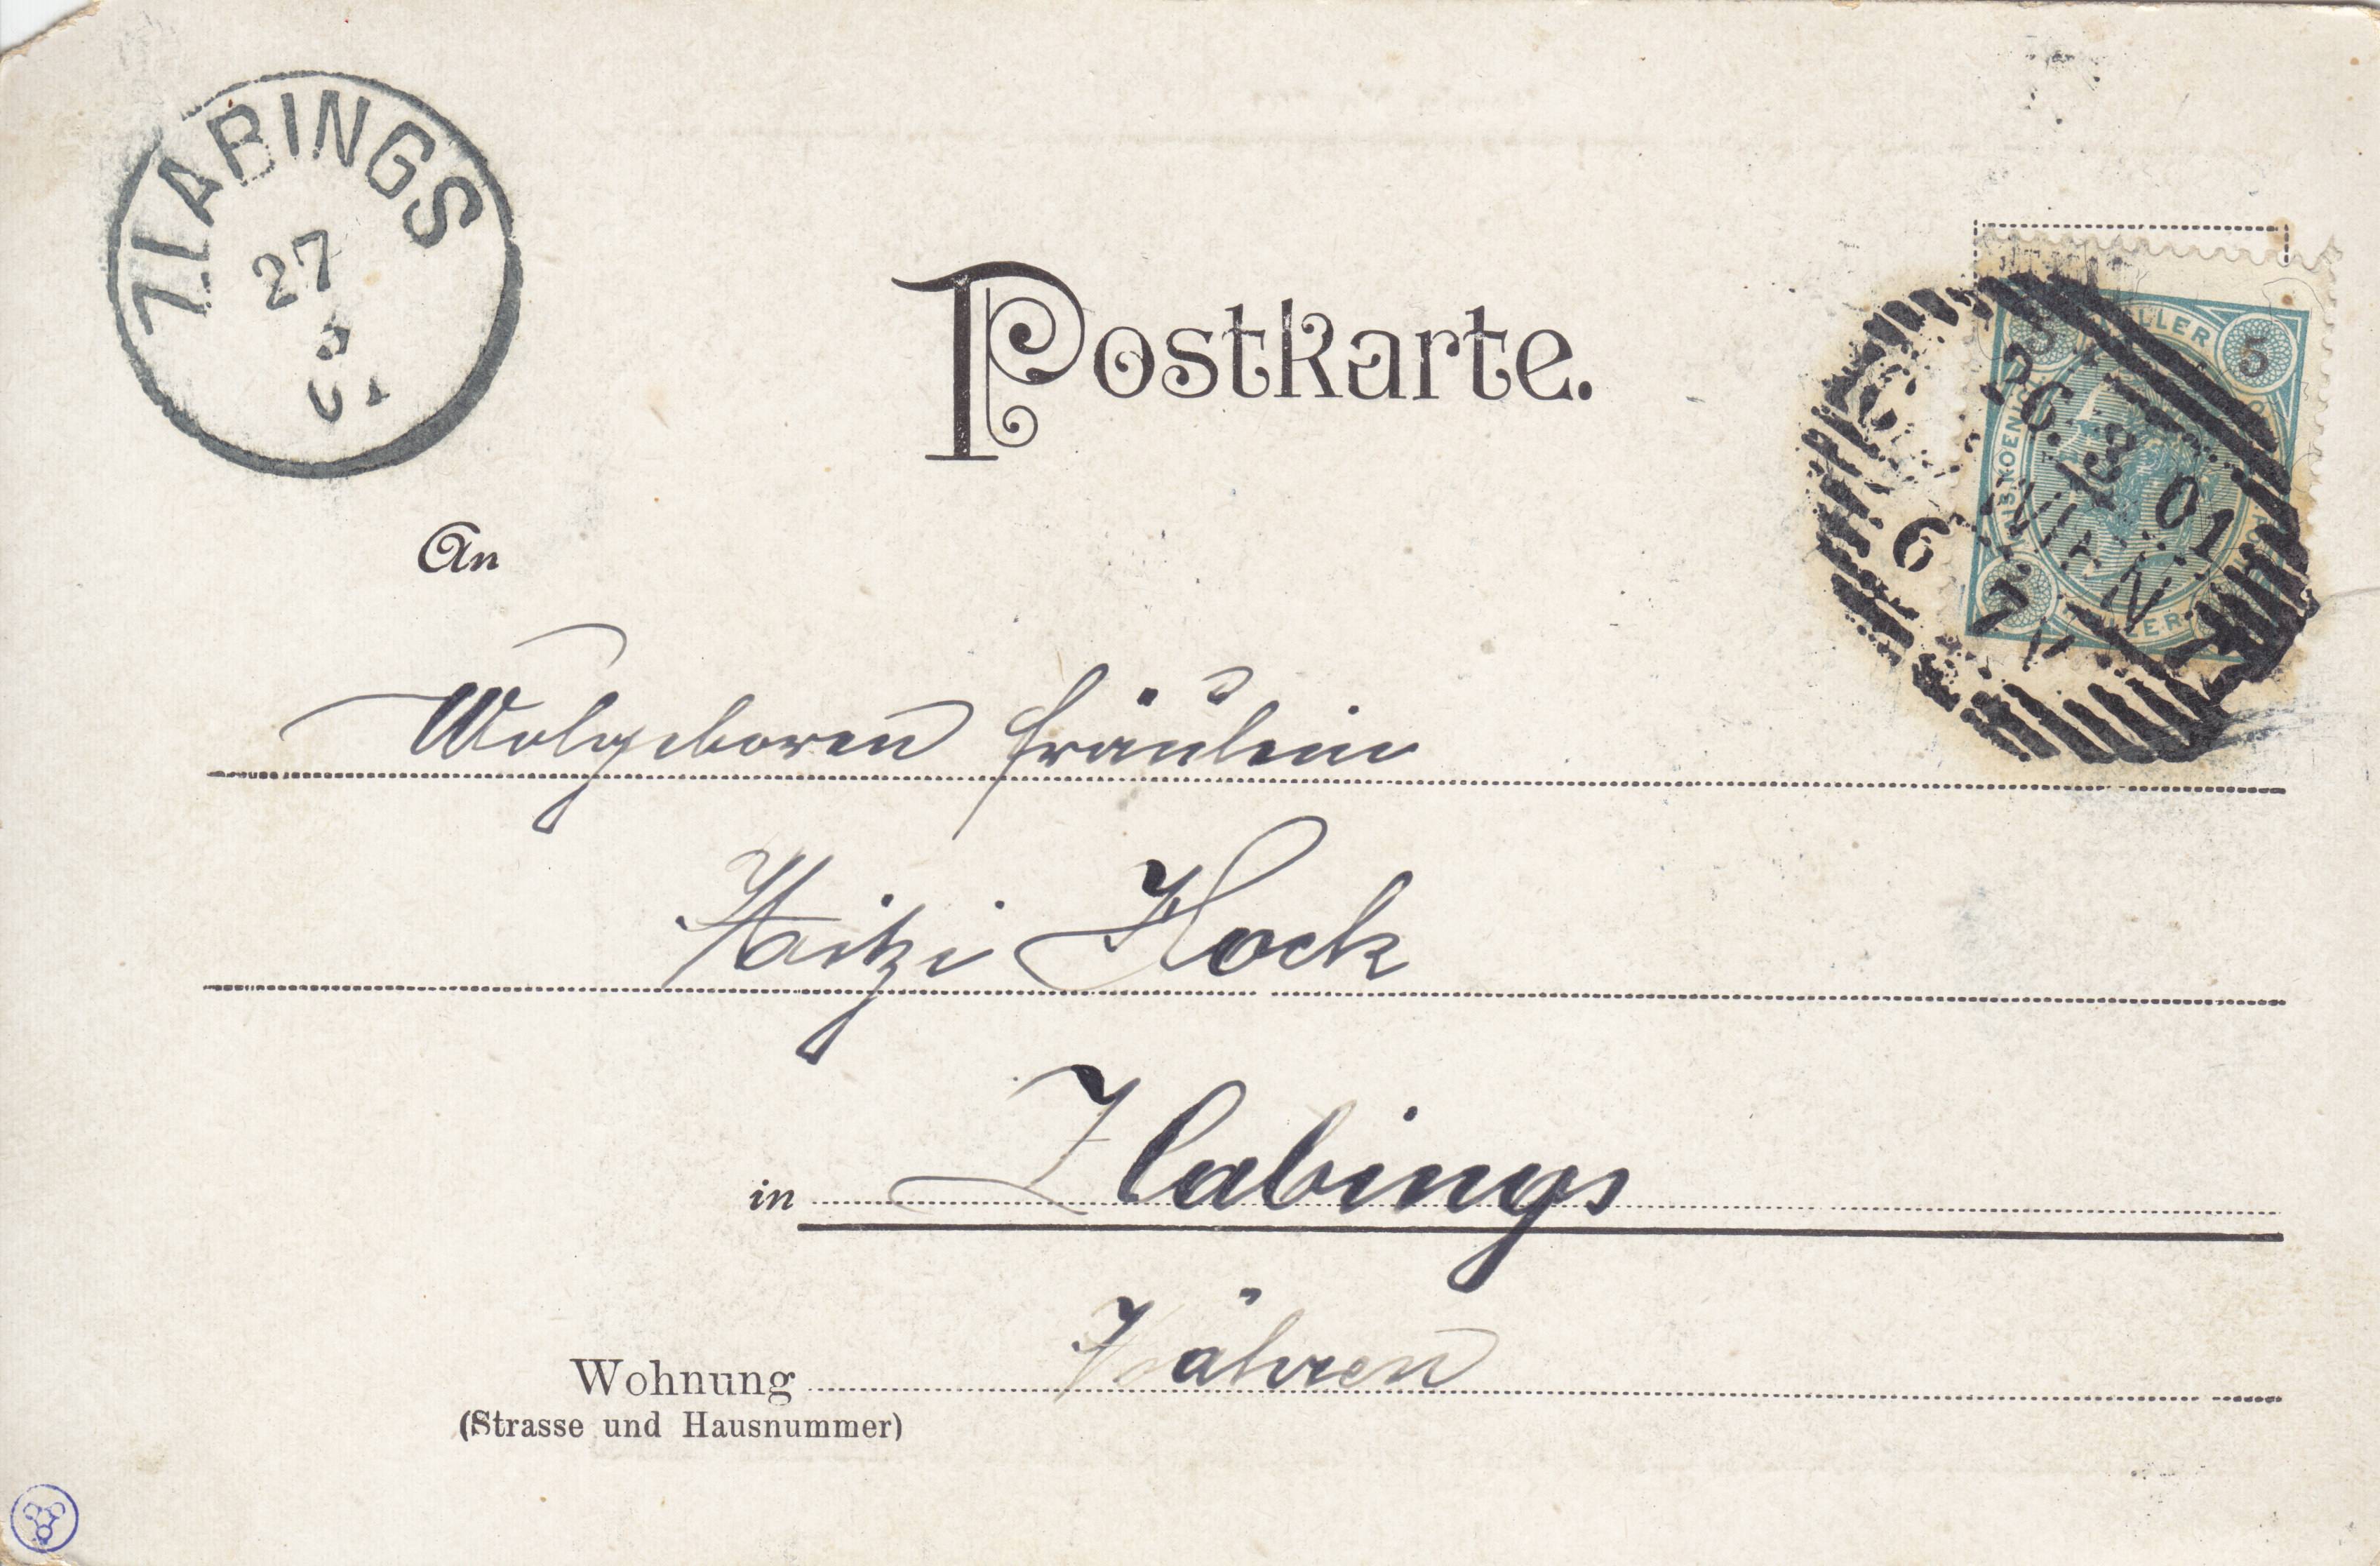 ZLABINGS
27
3
01
Postkarte.
HELLER
5
26. 3 01
WIEN
6
7 V
An
Wolgeboren Fräulein
Mitzi Hock
in Zlabings
Mähren
Wohnung
(Strasse und Hausnummer)